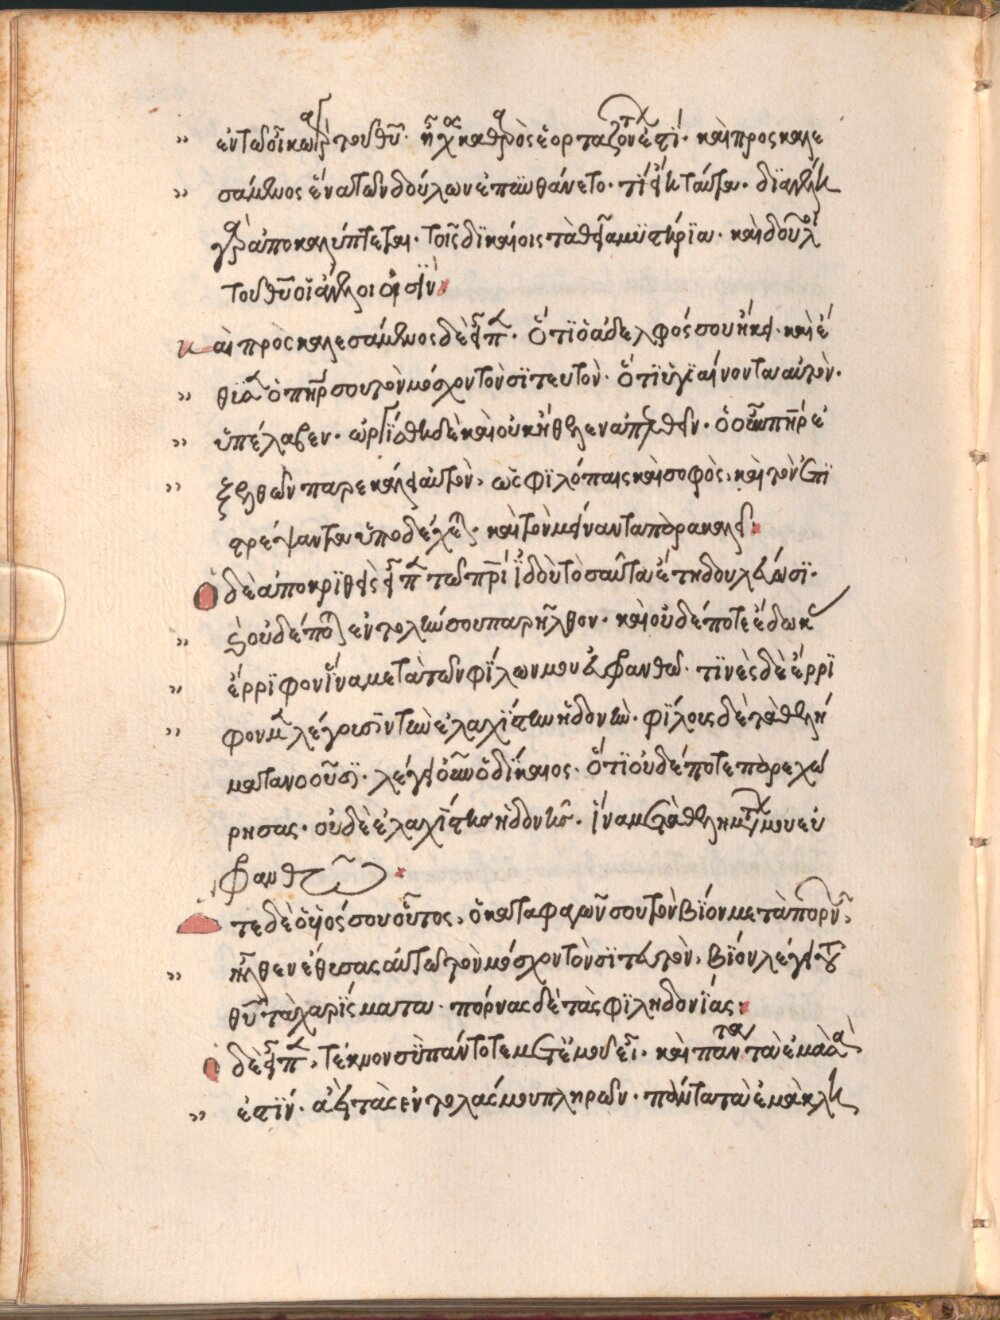 ἐν τῶ οἴκω γὰρ τοῦ θυ̅. ἡ χαρὰ καθαρῶς ἑορταζόντων ἐστί. καὶ προσκαλε
σάμενος ἕνα τῶν δούλων ἐπυνθάνετο. τί εἴη ταῦτα. δι' ἀγγέλων
γὰρ ἀποκαλύπτεται. τοῖς δικαίοις τὰ θεῖα μυστήρια. καὶ δοῦλοι
τοῦ θυ̅ οἱ ἄγγελοι εἰσίν:
καὶ προσκαλεσάμενος δὲ εἶπεν. ὅτι ὁ ἀδελφός σου ἥκει. καὶ ἔ
θυσεν ὁ πη̅ρ σου τὸν μόσχον τὸν σιτευτόν. ὅτι ὑγιαίνοντα αὐτὸν.
ὑπέλαβεν. ὠργίσθη δὲ καὶ οὐκ ἤθελεν εἰσελθεῖν. ὁ οὖν πη̅ρ ἐ
ξελθὼν παρεκάλει αὐτὸν, ὡς φιλόπαις καὶ σοφὸς, καὶ τὸν ἐπι
στρέψαντα ὑποδέχεται. καὶ τὸν μείναντα παρακαλεῖ:
ὁ δὲ ἀποκριθεὶς εἶπεν τῶ πρι̅ ἰδοὺ τοσαῦτα ἔτη δουλεύω σοι.
καὶ οὐδέποτε ἐντολήν σου παρῆλθον. καὶ οὐδέποτε ἔδωκας
ἔρριφον ἵνα μετὰ τῶν φίλων μου εὐφρανθῶ. τινὲς δὲ ἔρρι
φον μὲν λέγουσιν τὴν ἐλαχίστην ἡδονὴν. φίλους δὲ τὰ θελή
ματα νοοῦσι. λέγει οὖν ὁ δίκαιος. ὅτι οὐδέποτε παρεχώ
ρησας. οὐδὲ ἐλαχίστην ἡδονὴν. ἵνα μετὰ θελημάτων μου εὐ
φρανθῶ:
ὅτε δὲ ὁ υἱός σου οὗτος, ὁ καταφαγών σου τὸν βίον μετὰ πορνῶν,
ἦλθεν ἔθυσας αὐτῶ τὸν μόσχον τὸν σιτευτὸν, βίον λέγει τοῦ
θυ̅ τὰ χαρίσματα. πόρνας δὲ τὰς φιληδονίας:
ὁ δὲ εἶπεν, τέκνον σὺ πάντοτε μετ' ἐμοῦ εἶ. καὶ πάντα τὰ ἐμὰ σὰ
ἐστίν. ἀεὶ τὰς ἐντολάς μου πληρῶν. πάντα τὰ ἐμὰ κλη